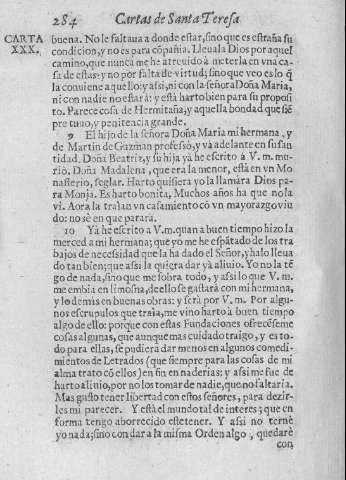 284 Cartas de Santa Teresa
CARTA
XXX.
buena. No le faltaua a donde estar, sino que es estraña su
condicion, y no es para cõpañia. Lleuala Dios por aquel
camino, que nunca me he atreuido à meterla en vna ca-
sa de estas: y no por falta de virtud; sino que veo es lo q̃
la conuiene aquello: y assi, ni con la señora Doña Maria,
ni con nadie no estarà: y està harto bien para su proposi
to. Parece cosa de Hermitaña, y aquella bondad que siẽ-
pre tuuo, y penitencia grande.
9 El hijo de la señora Doña Maria mi hermana, y
de Martin de Guzman professò, y và adelante en su san
tidad. Doña Beatriz, y su hija yà he escrito à V. m. mu-
riò. Doña Madalena, que era la menor, està en vn Mo
nasterio, seglar. Harto quisiera yo la llamàra Dios pa-
ra Monja. Es harto bonita, Muchos años ha que no la
vi. Aora la traìan vn casamiento cõ vn mayorazgo viu
do: no sè en que pararà.
10 Yà he escrito a V. m. quan a buen tiempo hizo la
merced a mi hermana; que yo me he espãtado de los tra
bajos de necessidad que la ha dado el Señor, y halo lleua
do tan bien; que assi la quiera dar yà aliuio. Yo no la tẽ
go de nada, sino que me sobra todo, y assi lo que V. m.
me embia en limosna, deello se gastarà con mi hermana,
y lo demàs en buenas obras: y serà por V. m. Por algu-
nos escrupulos que traìa, me vino harto à buen tiempo
algo de ello: porque con estas Fundaciones ofrecẽseme
cosas algunas, que aunque mas cuidado traigo, y es to-
do para ellas, se pudiera dar menos en algunos comedi-
mientos de Letrados (que siempre para las cosas de mi
alma trato cõ ellos) en fin en naderias: y assi me fue de
harto aliuio, por no los tomar de nadie, que no faltaria.
Mas gusto tener libertad con estos señores, para dezir-
les mi parecer. Y està el mundo tal de interes; que en
forma tengo aborrecido estetener. Y assi no ternè
yo nada; sino con dar a la misma Orden algo, quedarè
con